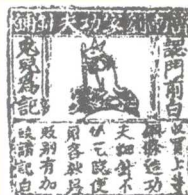 濟南劉家功夫針鋪
認門前白
兔兒為記
收買上等
鋼條造功
夫細針不
宅院使
用客轉為
販別有加
饒請記白